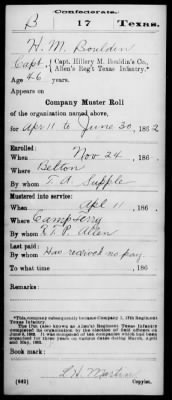 Confederate.
B 17 Texas.
H. M. Bouldin
Capt, Capt. Hillery M. Bouldin's Co., Allen's Reg't Texas Infantry.*
Age 46 years.
Appears on
Company Muster Roll
of the organization named above,
for April 11 to June 30, 1862
Enrolled:
When Nov 24, 186 .
Where Belton
By whom T. A. Supple
Mustered into service:
When Apl 11, 186 .
Where Camp Terry
By whom R. T. P. Allen
Last paid:
By whom Has received no pay.
To what time , 186 .
Remarks:
*This company subsequently became Company I, 17th Regiment
Texas Infantry.
The 17th (also known as Allen's) Regiment Texas Infantry
completed its organization by the election of field officers on
June 9, 1862. It was composed of ten companies which had been
organized for three years on various dates during March, April
and May, 1862.
Book mark:
L H Martin
(642) Copyist.